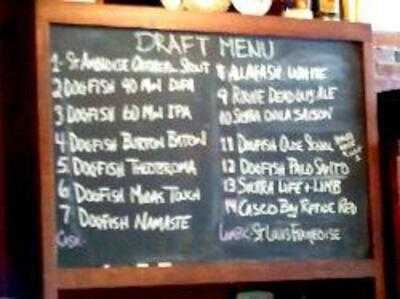 DRAFT MENU
1- ST AMBROISE OATMEAL STOUT
2 DOGFISH 90 MIN DIPA
3 DOGFISH 60 MIN IPA
4 DOGFISH BURTON BATON
5 DOGFISH THEOBROMA
6 DOGFISH MIDAS TOUCH
7 DOGFISH NAMASTE
CASK-
8 ALLAGASH WHITE
9 ROGUE DEAD GUY ALE
10 SAISON
11 DOGFISH OLDE SCHOOL
12 DOGFISH PALO SANTO
13 SIERRA LIFE + LIMB
14 CASCO BAY RIPTIDE RED
LAMBIC- ST LOUIS FRAMBOISE